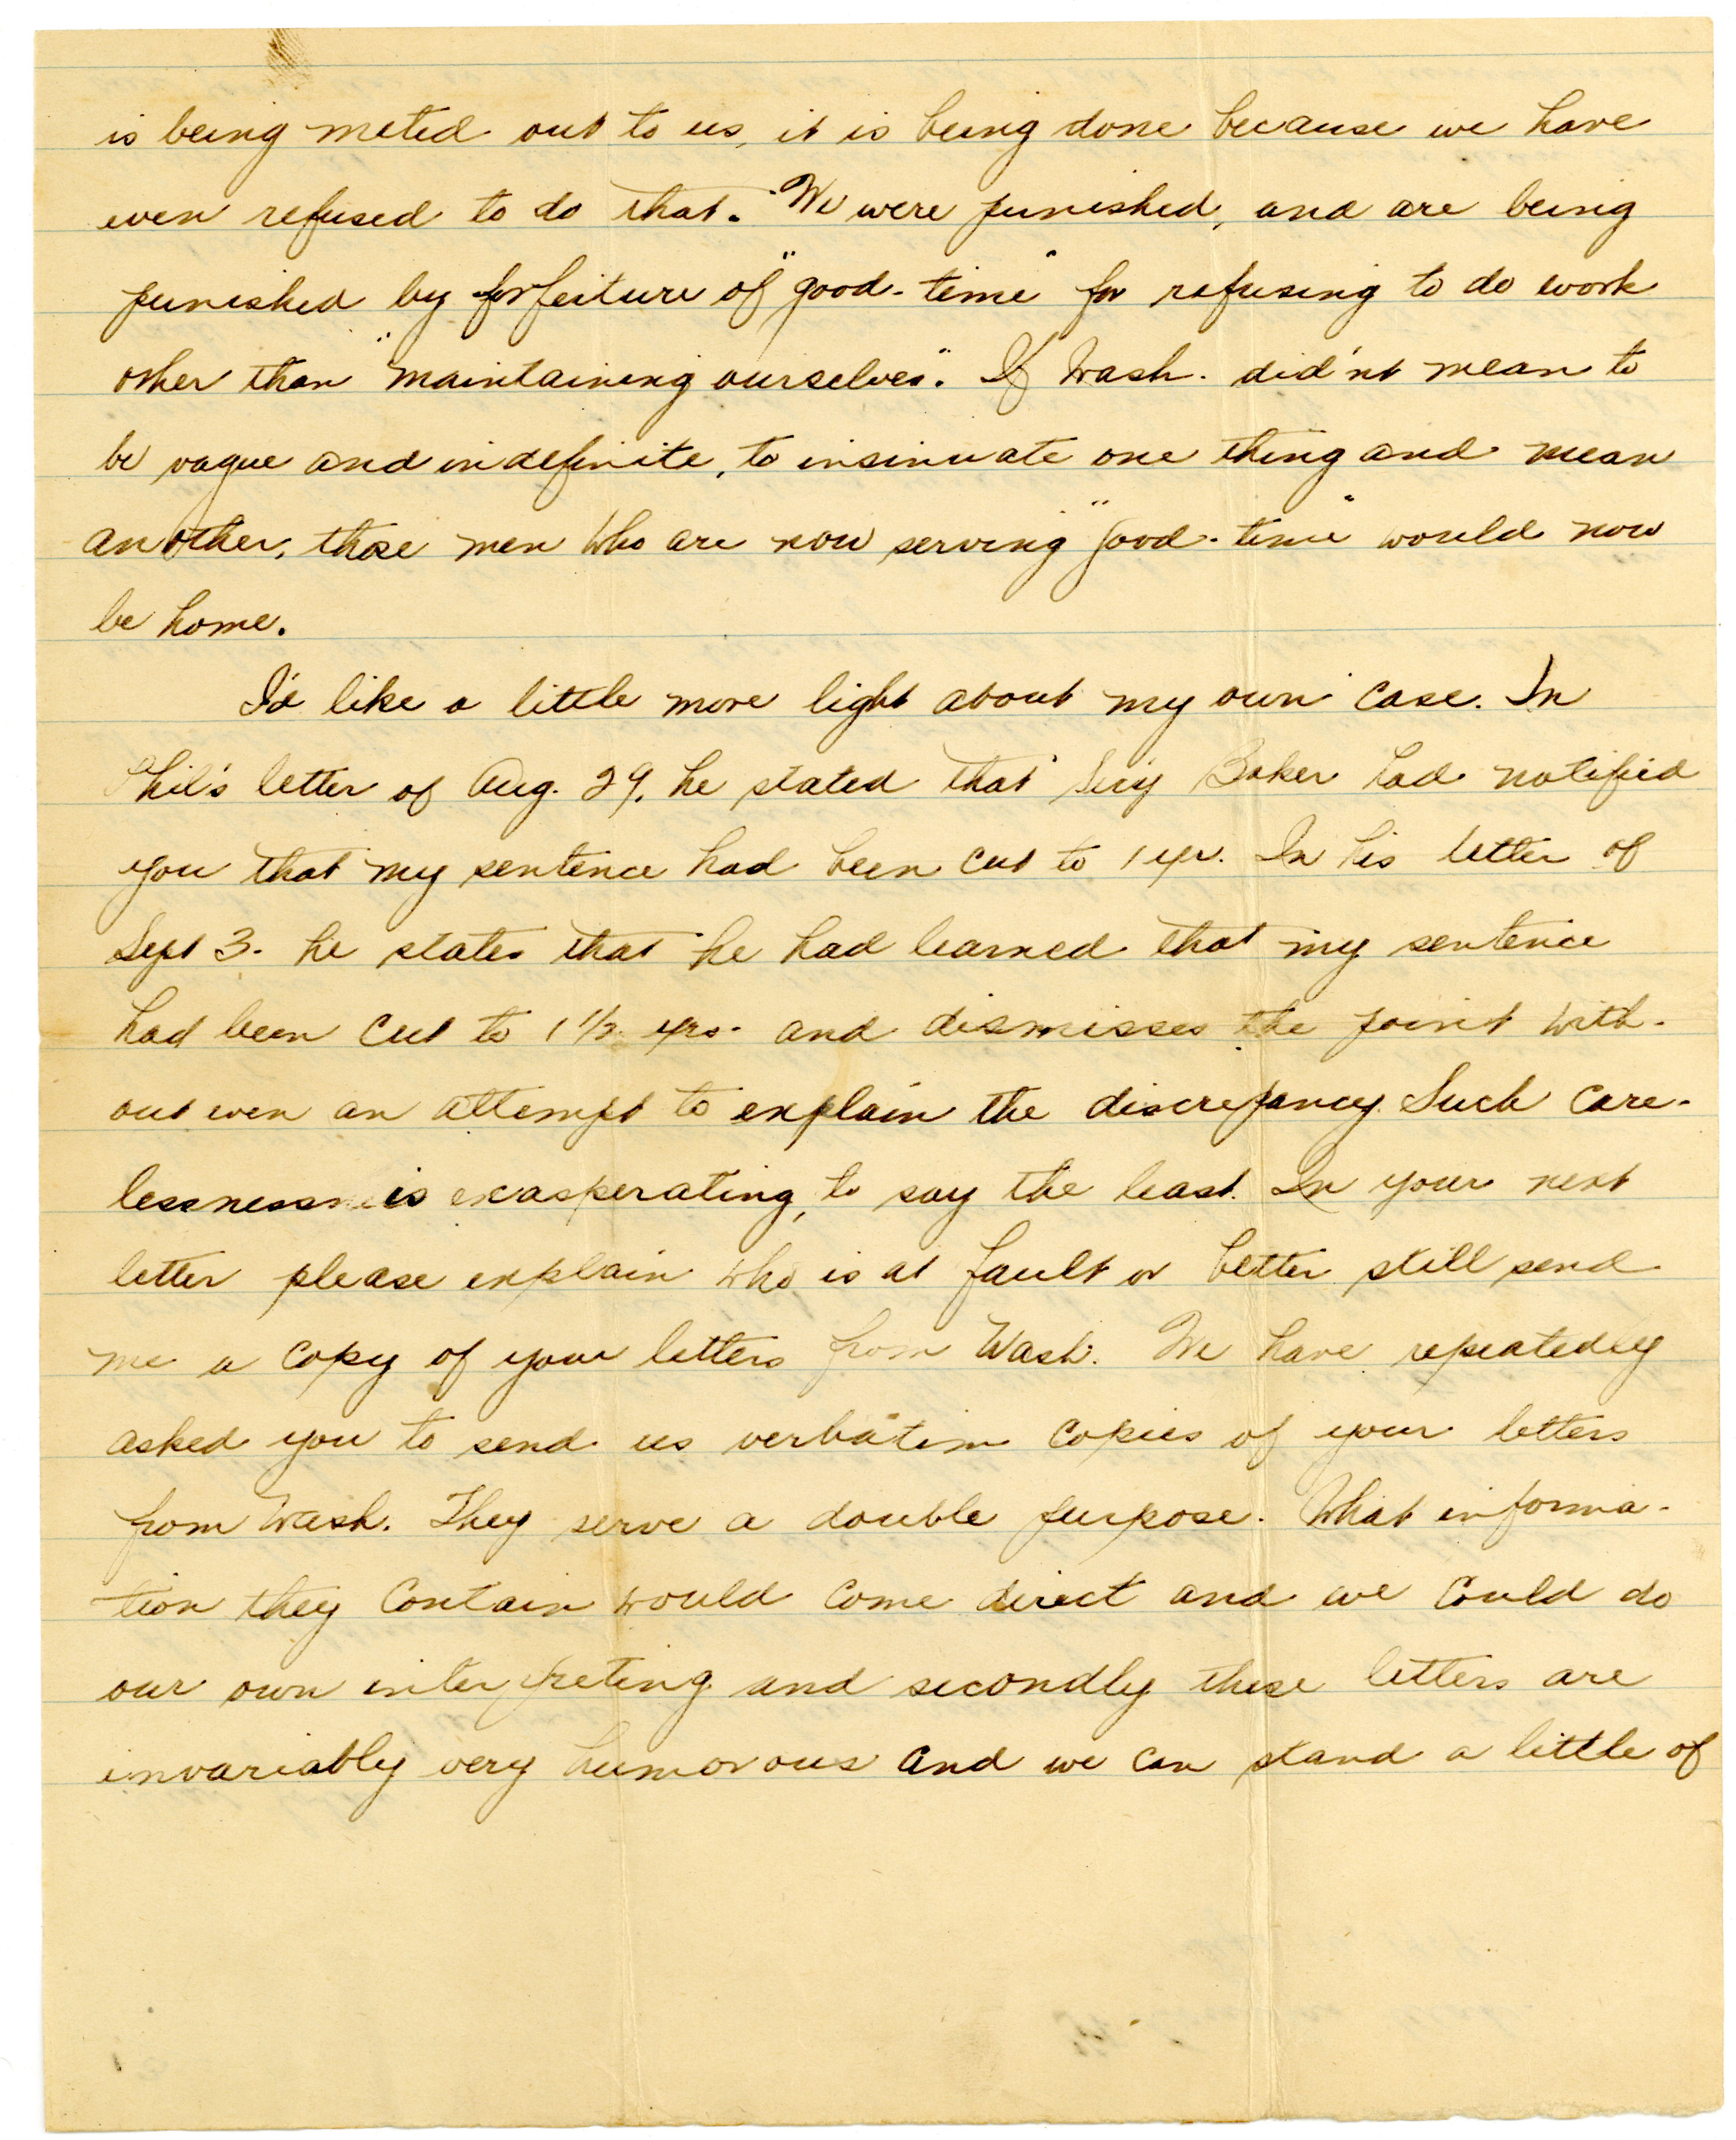 is being meted out to us, it is being done because we have
even refused to do that. We were punished, and are being
punished by forfeiture of "good-time" for refusing to do work
other than "maintaining ourselves". If Wash. did'nt mean to
be vague and indefinite, to insinuate one thing and mean
another, those men who are now serving "good-time" would now
be home.
I'd like a little more light about my own case. In
Phil's letter of Aug. 29, he stated that Sec'y Baker had notified
you that my sentence had been cut to 1 yr. In his letter of
Sept 3. he states that he had learned that my sentence
had been cut to 1 1/2 yrs. and dismisses the point with-
out even an attempt to explain the discrepancy. Such care-
lessness is exasperating, to say the least. In your next
letter please explain who is at fault or better still send
me a copy of your letters from Wash. We have repeatedly
asked you to send us verbatim copies of your letters
from Wash. They serve a double purpose. What informa-
tion they contain would come direct and we could do
our own interpreting and secondly these letters are
invariably very humorous and we can stand a little of